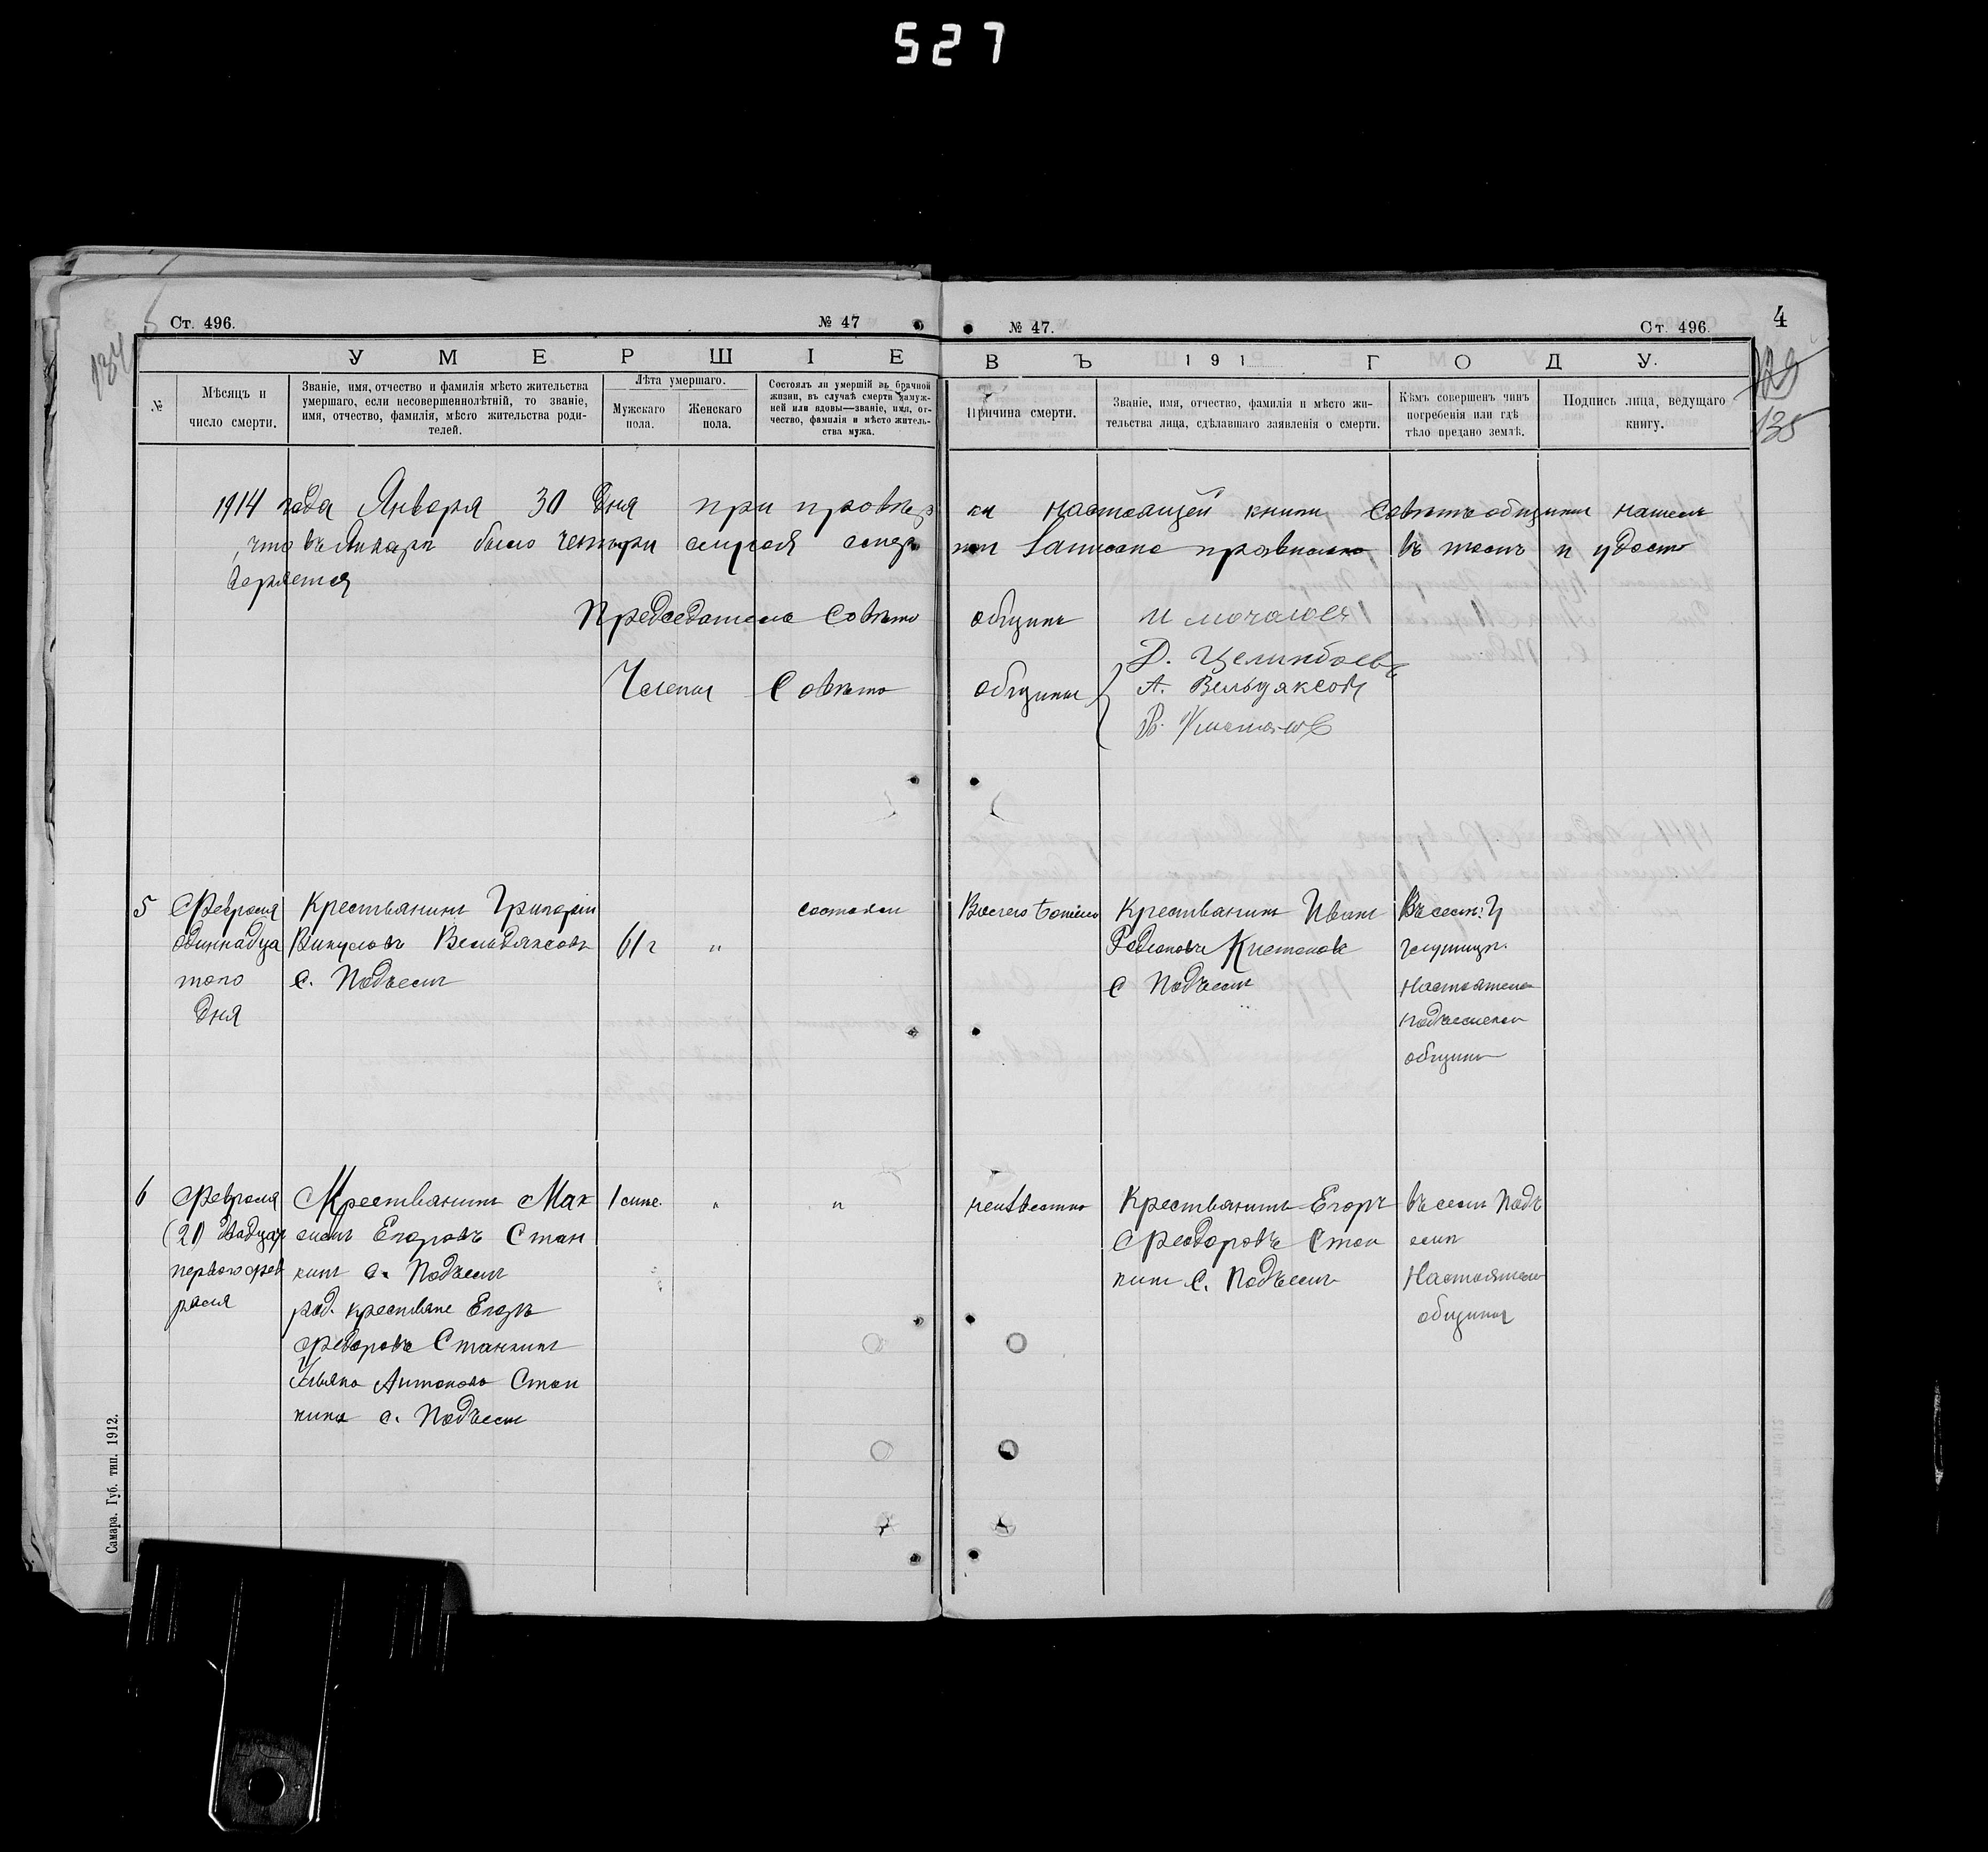 527
Ст. 496.
№ 47
№ 47.
Ст. 496.
4
134
135
УМЕРШІЕ
ВЪ 191 ГОДУ.
№
Мѣсяцъ и число смерти.
Званіе, имя, отчество и фамилія мѣсто жительства
умершаго, если несовершеннолѣтній, то званіе,
имя, отчество, фамилія, мѣсто жительства роди-
телей.
Лѣта умершаго.
Мужскаго пола.
Женскаго пола.
Состоялъ ли умершій въ брачной
жизни, въ случаѣ смерти замуж-
ней или вдовы—званіе, имя, от-
чество, фамилія и мѣсто житель-
ства мужа.
Причина смерти.
Званіе, имя, отчество, фамилія и мѣсто жи-
тельства лица, сдѣлавшаго заявленія о смерти.
Кѣмъ совершенъ чинъ
погребенія или гдѣ
тѣло предано землѣ.
Подпись лица, ведущаго
книгу.
1914 года Января 30 дня при провѣр ки настоящей книги Совѣтъ общины нашелъ
что въ было четыри случая смер ти записано правильно въ томъ и удосто
веряется
Председатель Совѣта общины
Члены Совѣта общины
5
Февраля
одиннадца
таго
дня
Крестьянинъ Григорий
Викуловъ Вельдяксовъ
с. Подъемъ
61 г
"
состоялъ
Крестьянинъ Иванъ
Кистановъ
с Подъемъ
Настоятель
общины
6
Февраля
(21) двадцать
первого фев
раля
Крестьянинъ Мак
симъ Егоровъ Стан
кинъ с. Подъемъ
род. крестьяне Егоръ
Федоровъ Станкинъ
Антонова Стан
кина с. Подъемъ
"
"
неизвестно
Крестьянинъ Егоръ
Феодоровъ Стан
кинъ с. Подъемъ
въ селе Подъ
емъ
Настоятель
общины
Самара. Губ. тип. 1912.